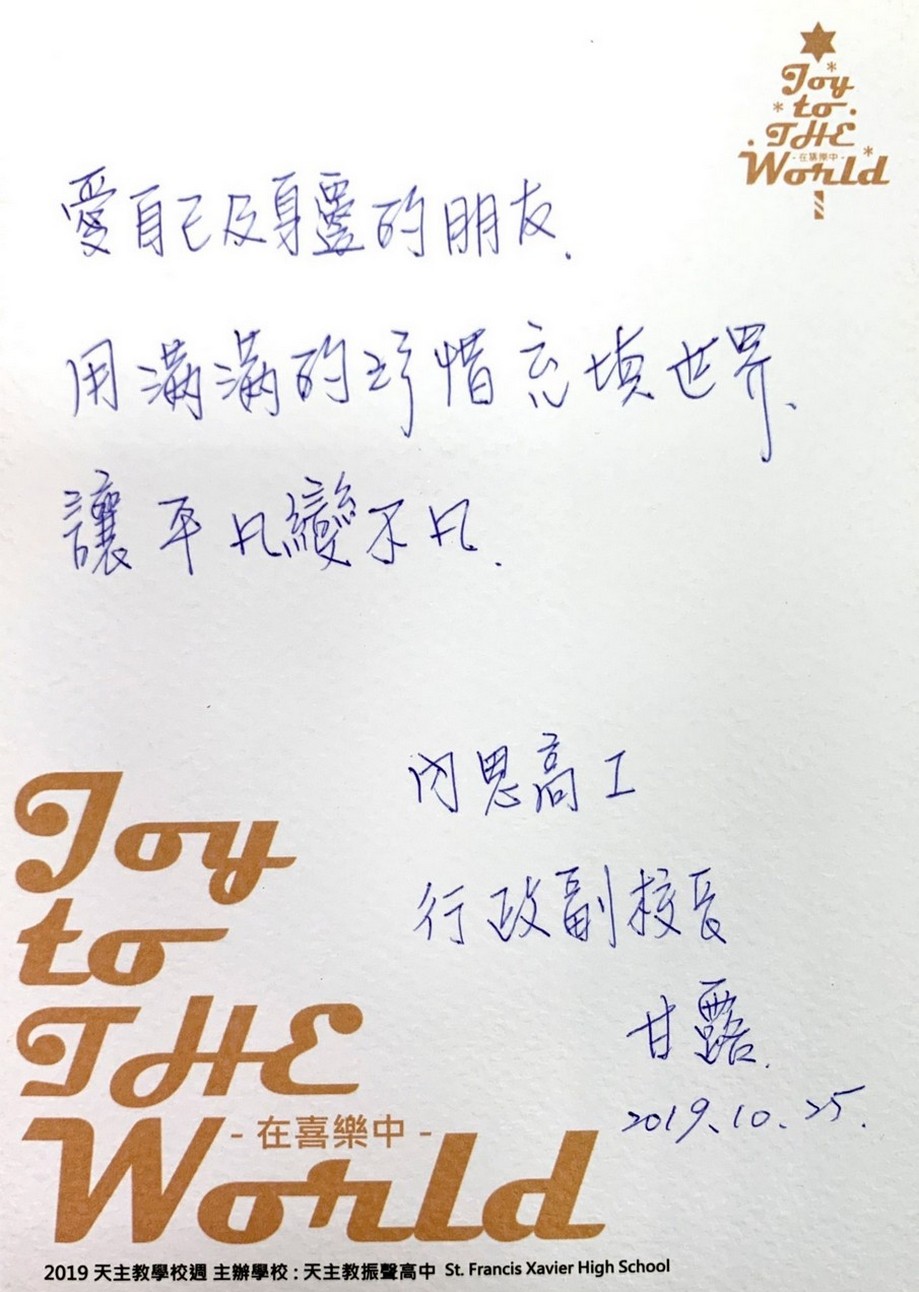 Joy
to
THE
-在喜樂中-
World
愛自己及身邊的朋友.
用滿滿的珍惜充填世界.
讓平凡變不凡.
內思高工
行政副校長
甘露.
2019.10.25.
Joy
to
THE
- 在喜樂中 -
World
2019 天主教學校週 主辦學校：天主教振聲高中 St. Francis Xavier High School